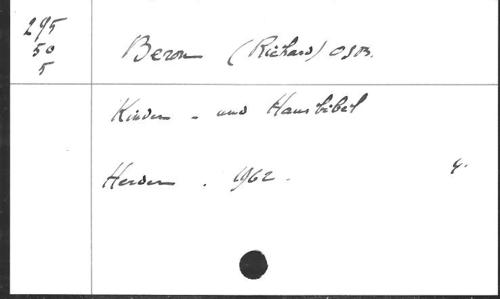 295
50
5
Beron (Richard) OSB.
Kinder - und Hausbibel
Herder . 1962 . 4.